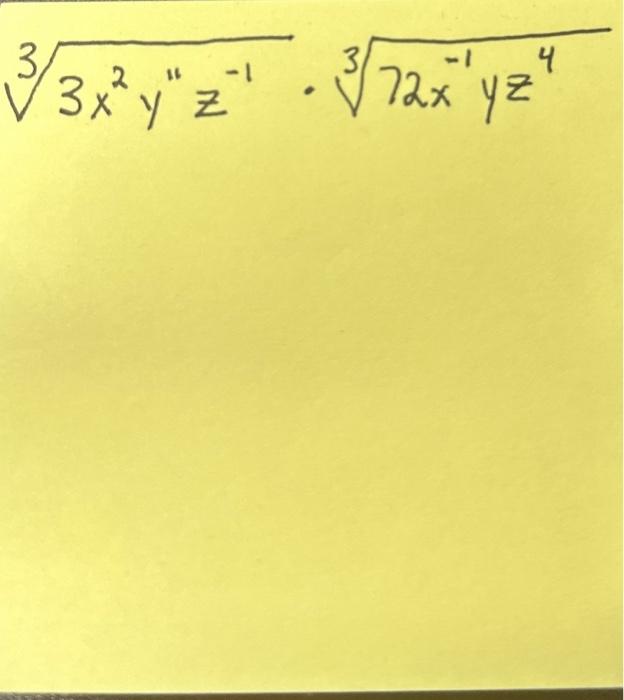 ∛(3x²y¹¹z⁻¹) · ∛(72x⁻¹yz⁴)